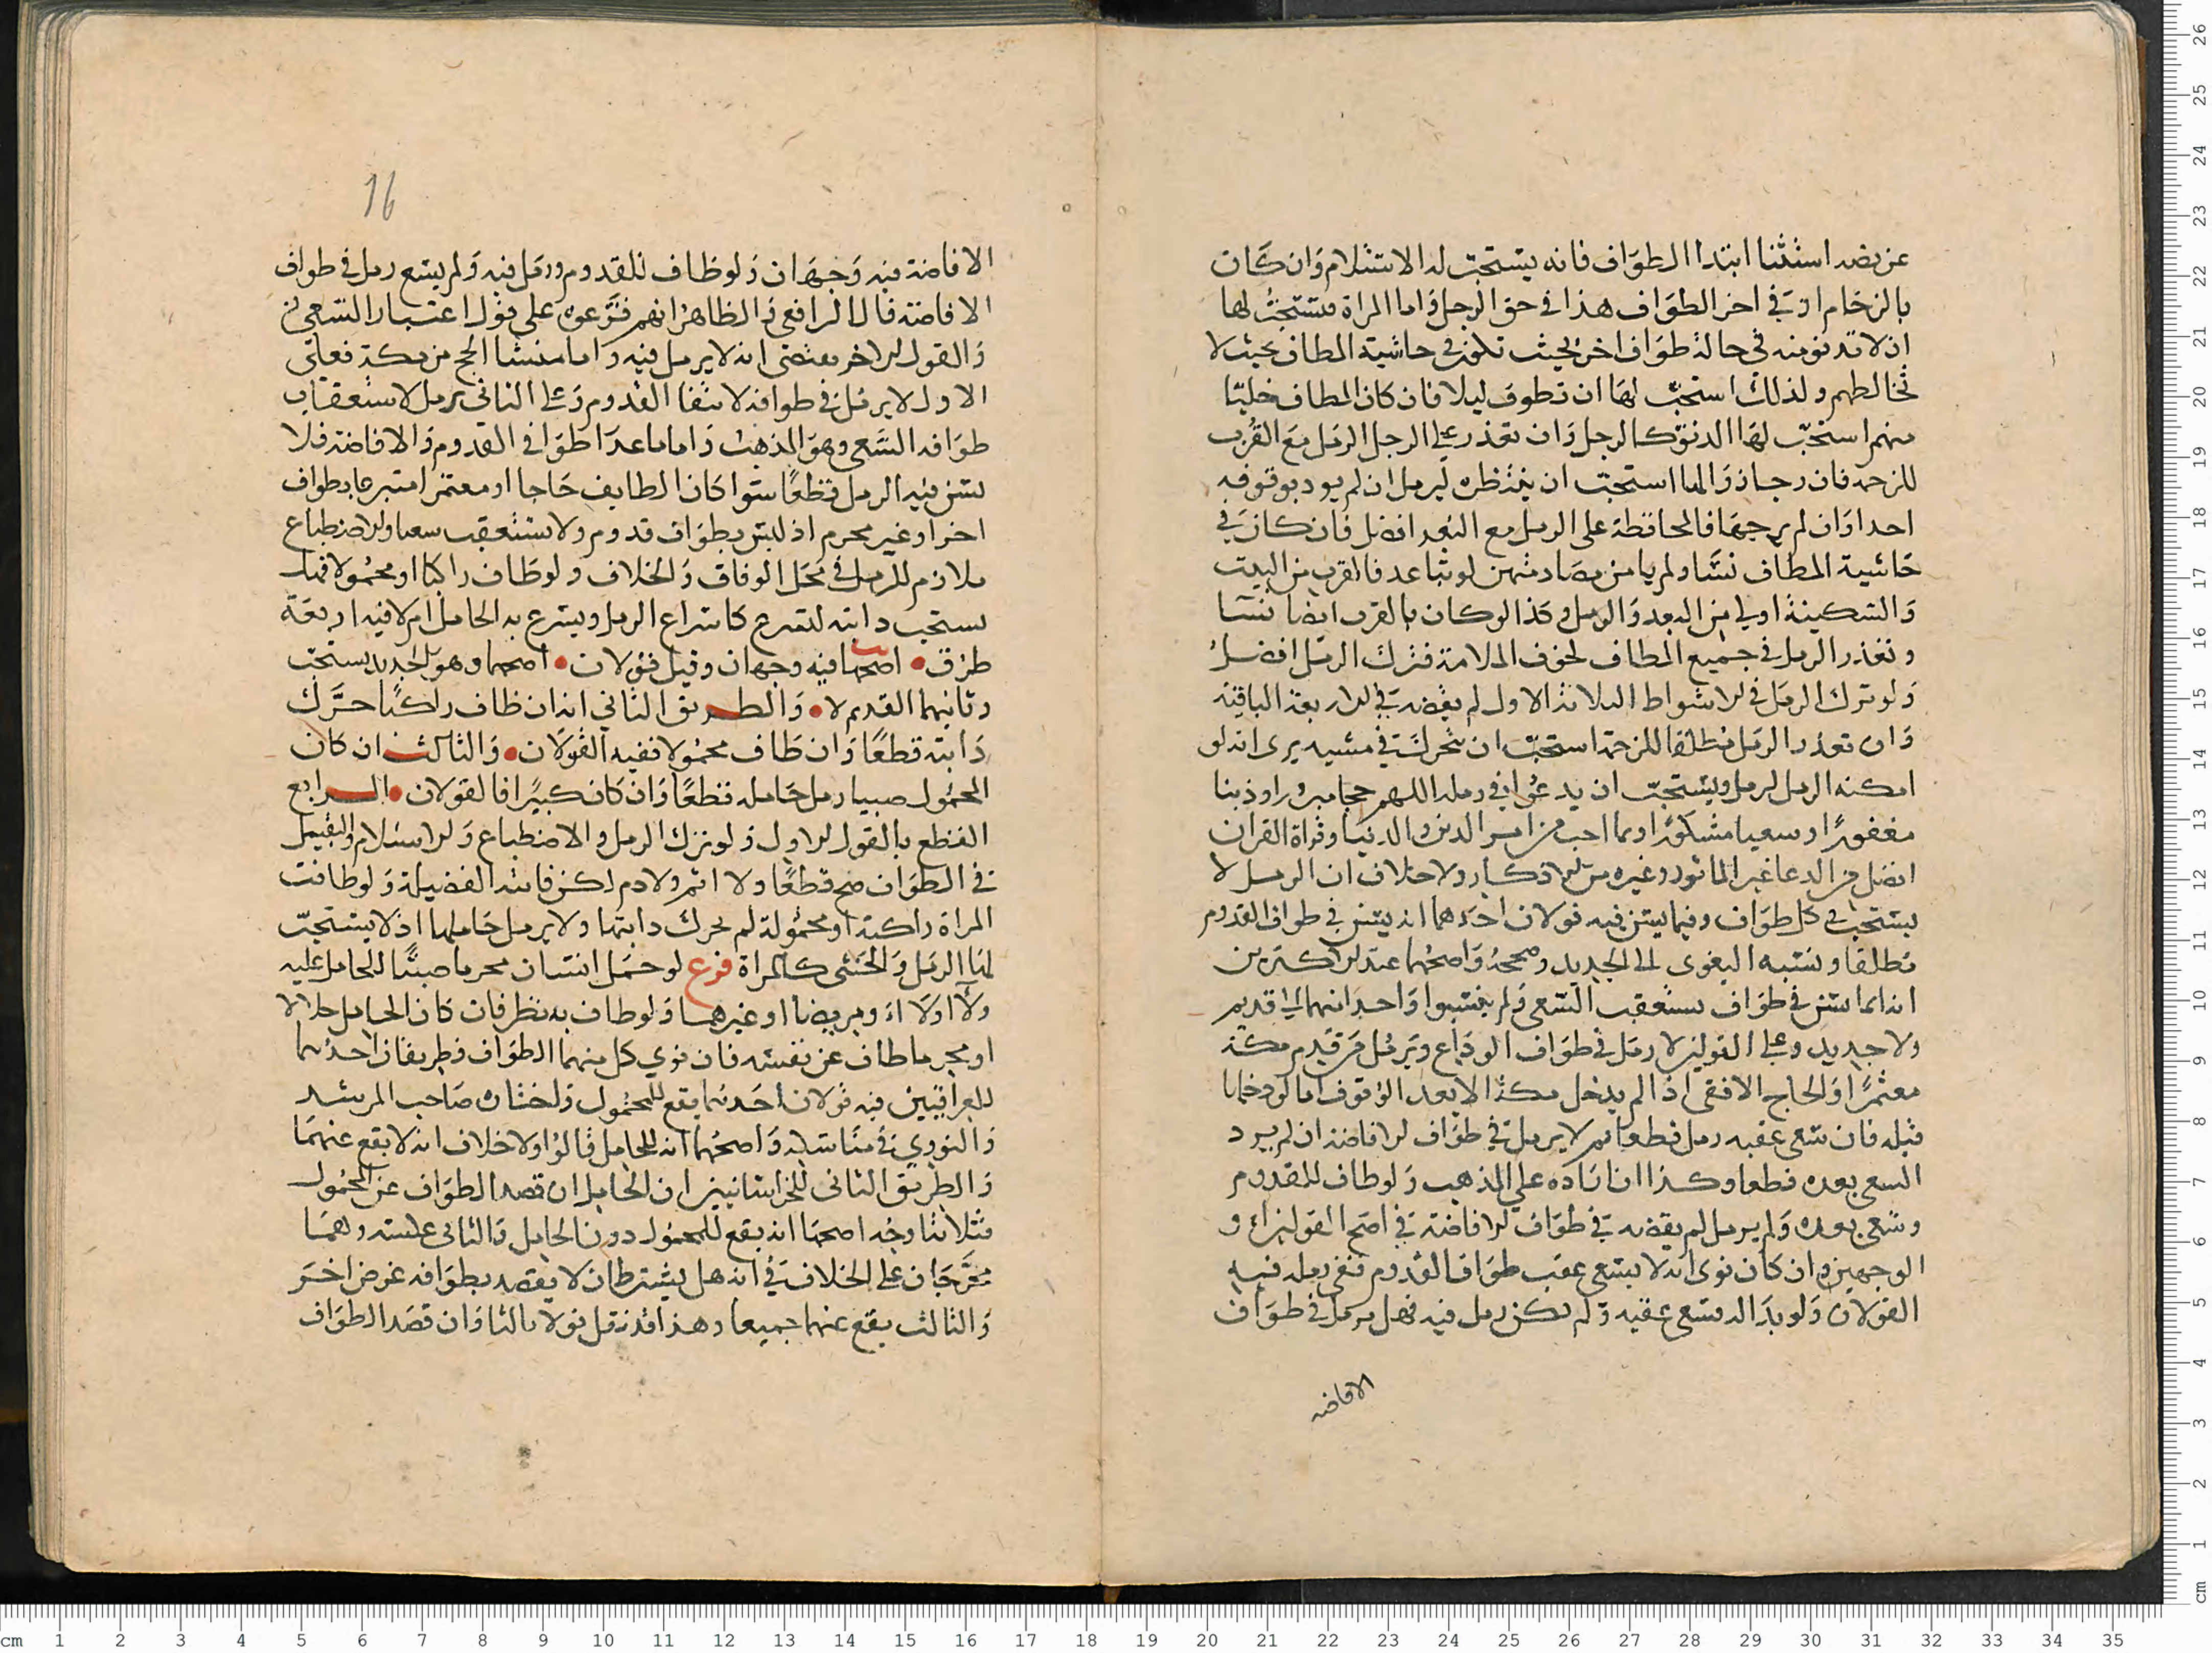 عن نصه استثنا ابتدا الطواف فانه يستحب له الاستلام وان كان
بالزخام او في اخر الطواف هذا في حق الرجل واما المراة فيستحب لها
ان لا تدنو منه في حالة طواف اخر بحيث تكون في حاشية المطاف بحيث لا
تخالطهم ولذلك استحب لها ان تطوف ليلا فان كان المطاف خليا
منهم استحب لها الدنو كالرجل وان تعذر على الرجل الرمل مع القرب
للزحمة فان رجا زوالها استحب ان ينتظره ليرمل ان لم يوذ بوقوفه
احدا وان لم يرجها فالمحافظة على الرمل مع البعد افضل فان كان في
حاشية المطاف نسا ولم يامن مصادمتهن لو تباعد فالقرب من البيت
والسكينة اولى من البعد والرمل وكذا لو كان بالقرب ايضا نسا
وتعذر الرمل في جميع المطاف لخوف الملامسة فترك الرمل افضل
ولو ترك الرمل في الاشواط الثلاثة الاول لم يقضه في الاربعة الباقية
وان تعذر الرمل مطلقا للزحمة استحب ان يتحرك في مشيه يرى انه لو
امكنه الرمل لرمل ويستحب ان يدعو في رمله اللهم حجا مبرورا وذنبا
مغفورا وسعيا مشكورا وبما احب من امر الدين والدنيا وقراة القران
افضل من الدعا غير الماثور وغيره من الاذكار ولا خلاف ان الرمل لا
يستحب في كل طواف وفيما يسن فيه قولان احدهما انه يسن في طواف القدوم
مطلقا ونسبه البغوي الى الجديد وصححه واصحهما عند الاكثرين
انه انما يسن في طواف يستعقب السعي ولم ينسبوا واحدا منهما الى قديم
ولا جديد وعلى القولين لا رمل في طواف الوداع ويرمل من قدم مكة
معتمرا والحاج الافقي اذا لم يدخل مكة الا بعد الوقوف اما لو دخلها
قبله فان سعى عقبه رمل قطعا ثم لا يرمل في طواف الافاضة ان لم يرد
السعي بعده قطعا وكذا ان اراده على المذهب ولو طاف للقدوم
وسعى بعده ولم يرمل لم يقضه في طواف الافاضة في اصح القولين او
الوجهين وان كان نوى انه لا يسعى عقب طواف القدوم ففي رمله فيه
القولان ولو بدا له فسعى عقبه ولم يكن رمل فيه فهل يرمل في طواف
الافاضة
16
الافاضة فيه وجهان ولو طاف للقدوم ورمل فيه ولم يسع رمل في طواف
الافاضة قال الرافعي والظاهر انهم فرعوه على قول اعتبار السعي
والقول الاخر يقتضي انه لا يرمل فيه واما منشا الحج من مكة فعلى
الاول لا يرمل في طوافه لانتفا القدوم وعلى الثاني يرمل لاستعقاب
طوافه السعي وهو المذهب واما ما عدا طوافي القدوم والافاضة فلا
يسن فيه الرمل قطعا سوا كان الطايف حاجا او معتمرا متبرعا بطواف
اخر او غير محرم اذ ليس بطواف قدوم ولا يستعقب سعيا والاضطباع
ملازم للرمل في محل الوفاق والخلاف ولو طاف راكبا او محمولا فهل
يستحب دابته لتسرع كاسراع الرمل ويسرع به الحامل ام لا فيه اربعة
طرق • اصحها فيه وجهان وقيل قولان • اصحهما وهو الجديد يستحب
وثانيهما القديم لا • والطريق الثاني انه ان طاف راكبا حرك
دابته قطعا وان طاف محمولا ففيه القولان • والثالث ان كان
المحمول صبيا رمل حامله قطعا وان كان كبيرا فالقولان • الرابع
القطع بالقول الاول ولو ترك الرمل والاضطباع والاستلام والتقبيل
في الطواف صح قطعا ولا اثم ولا دم لكن فاتته الفضيلة ولو طافت
المراة راكبة او محمولة لم يحرك دابتها ولا يرمل حاملها اذ لا يستحب
لها الرمل والخنثى كالمراة فرع لو حمل انسان محرما صبيا للحامل عليه
ولا او لا او مريضا او غيرهما ولو طاف به نظر فان كان الحامل حلالا
او محرما طاف عن نفسه فان نوى كل منهما الطواف فطريقان احدهما
للعراقيين فيه قولان احدهما يقع للمحمول واختاره صاحب المرشد
والنووي في مناسكه واصحهما انه للحامل قالوا ولا خلاف انه لا يقع عنهما
والطريق الثاني للخراسانيين ان الحامل ان قصد الطواف عن المحمول
فثلاثة اوجه اصحها انه يقع للمحمول دون الحامل والثاني عكسه وهما
مخرجان على الخلاف في انه هل يشترط ان لا يقصد بطوافه غرض اخر
والثالث يقع عنهما جميعا وهذا قد نقل قولا ثالثا وان قصد الطواف